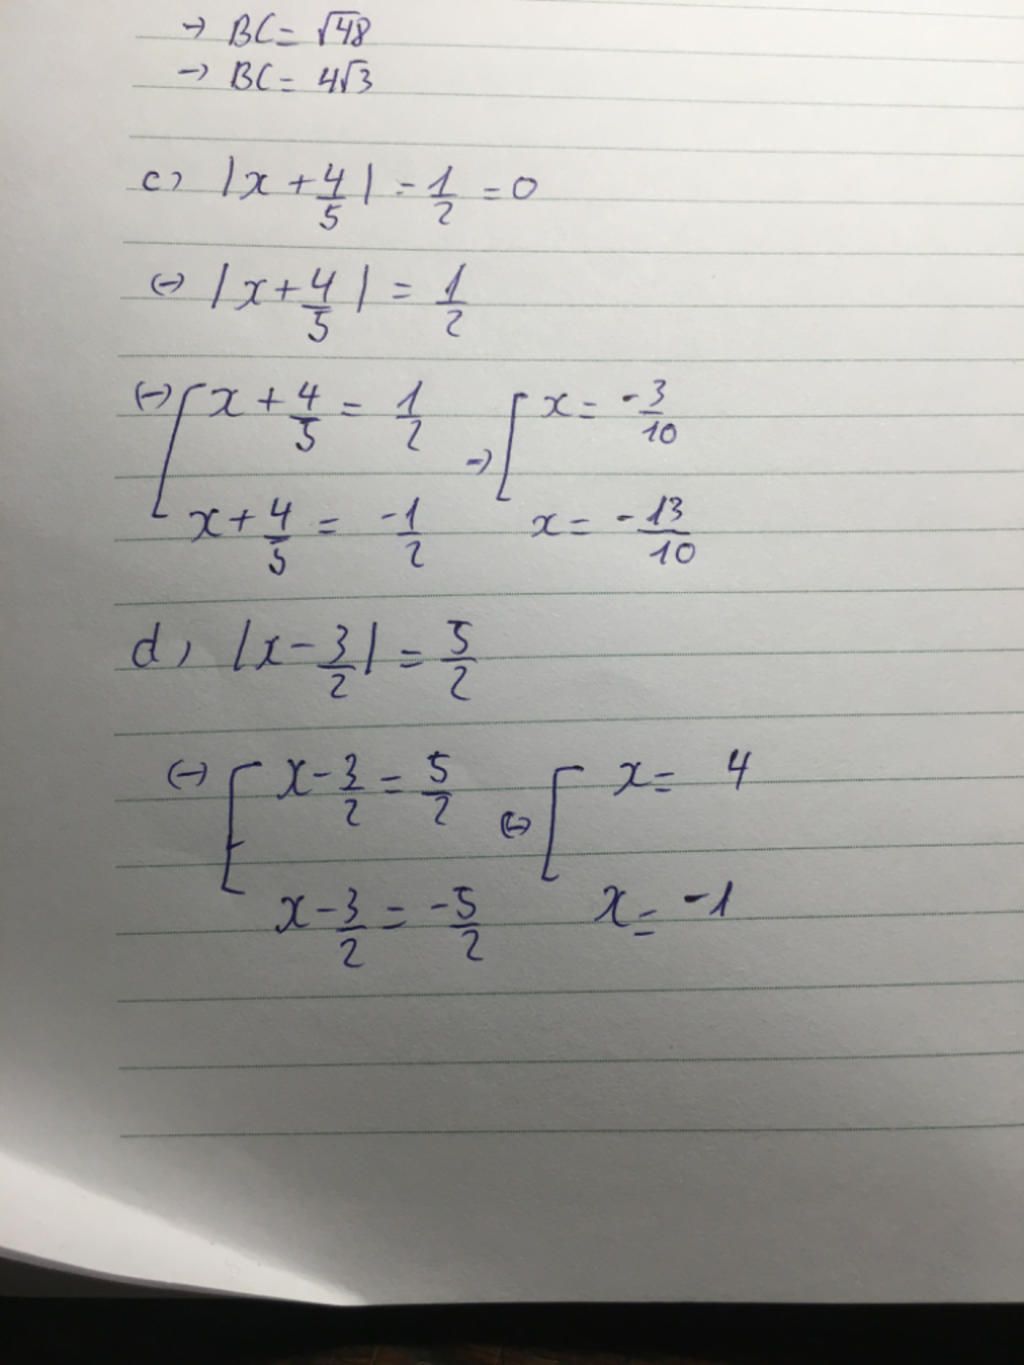 → BC = √48
→ BC = 4√3
c) |x + 4/5| - 1/2 = 0
(-) |x + 4/5| = 1/2
(-) [ x + 4/5 = 1/2 → [ x = -3/10
x + 4/5 = -1/2 x = -13/10
d) |x - 3/2| = 5/2
(-) [ x - 3/2 = 5/2 (-) [ x = 4
x - 3/2 = -5/2 x = -1